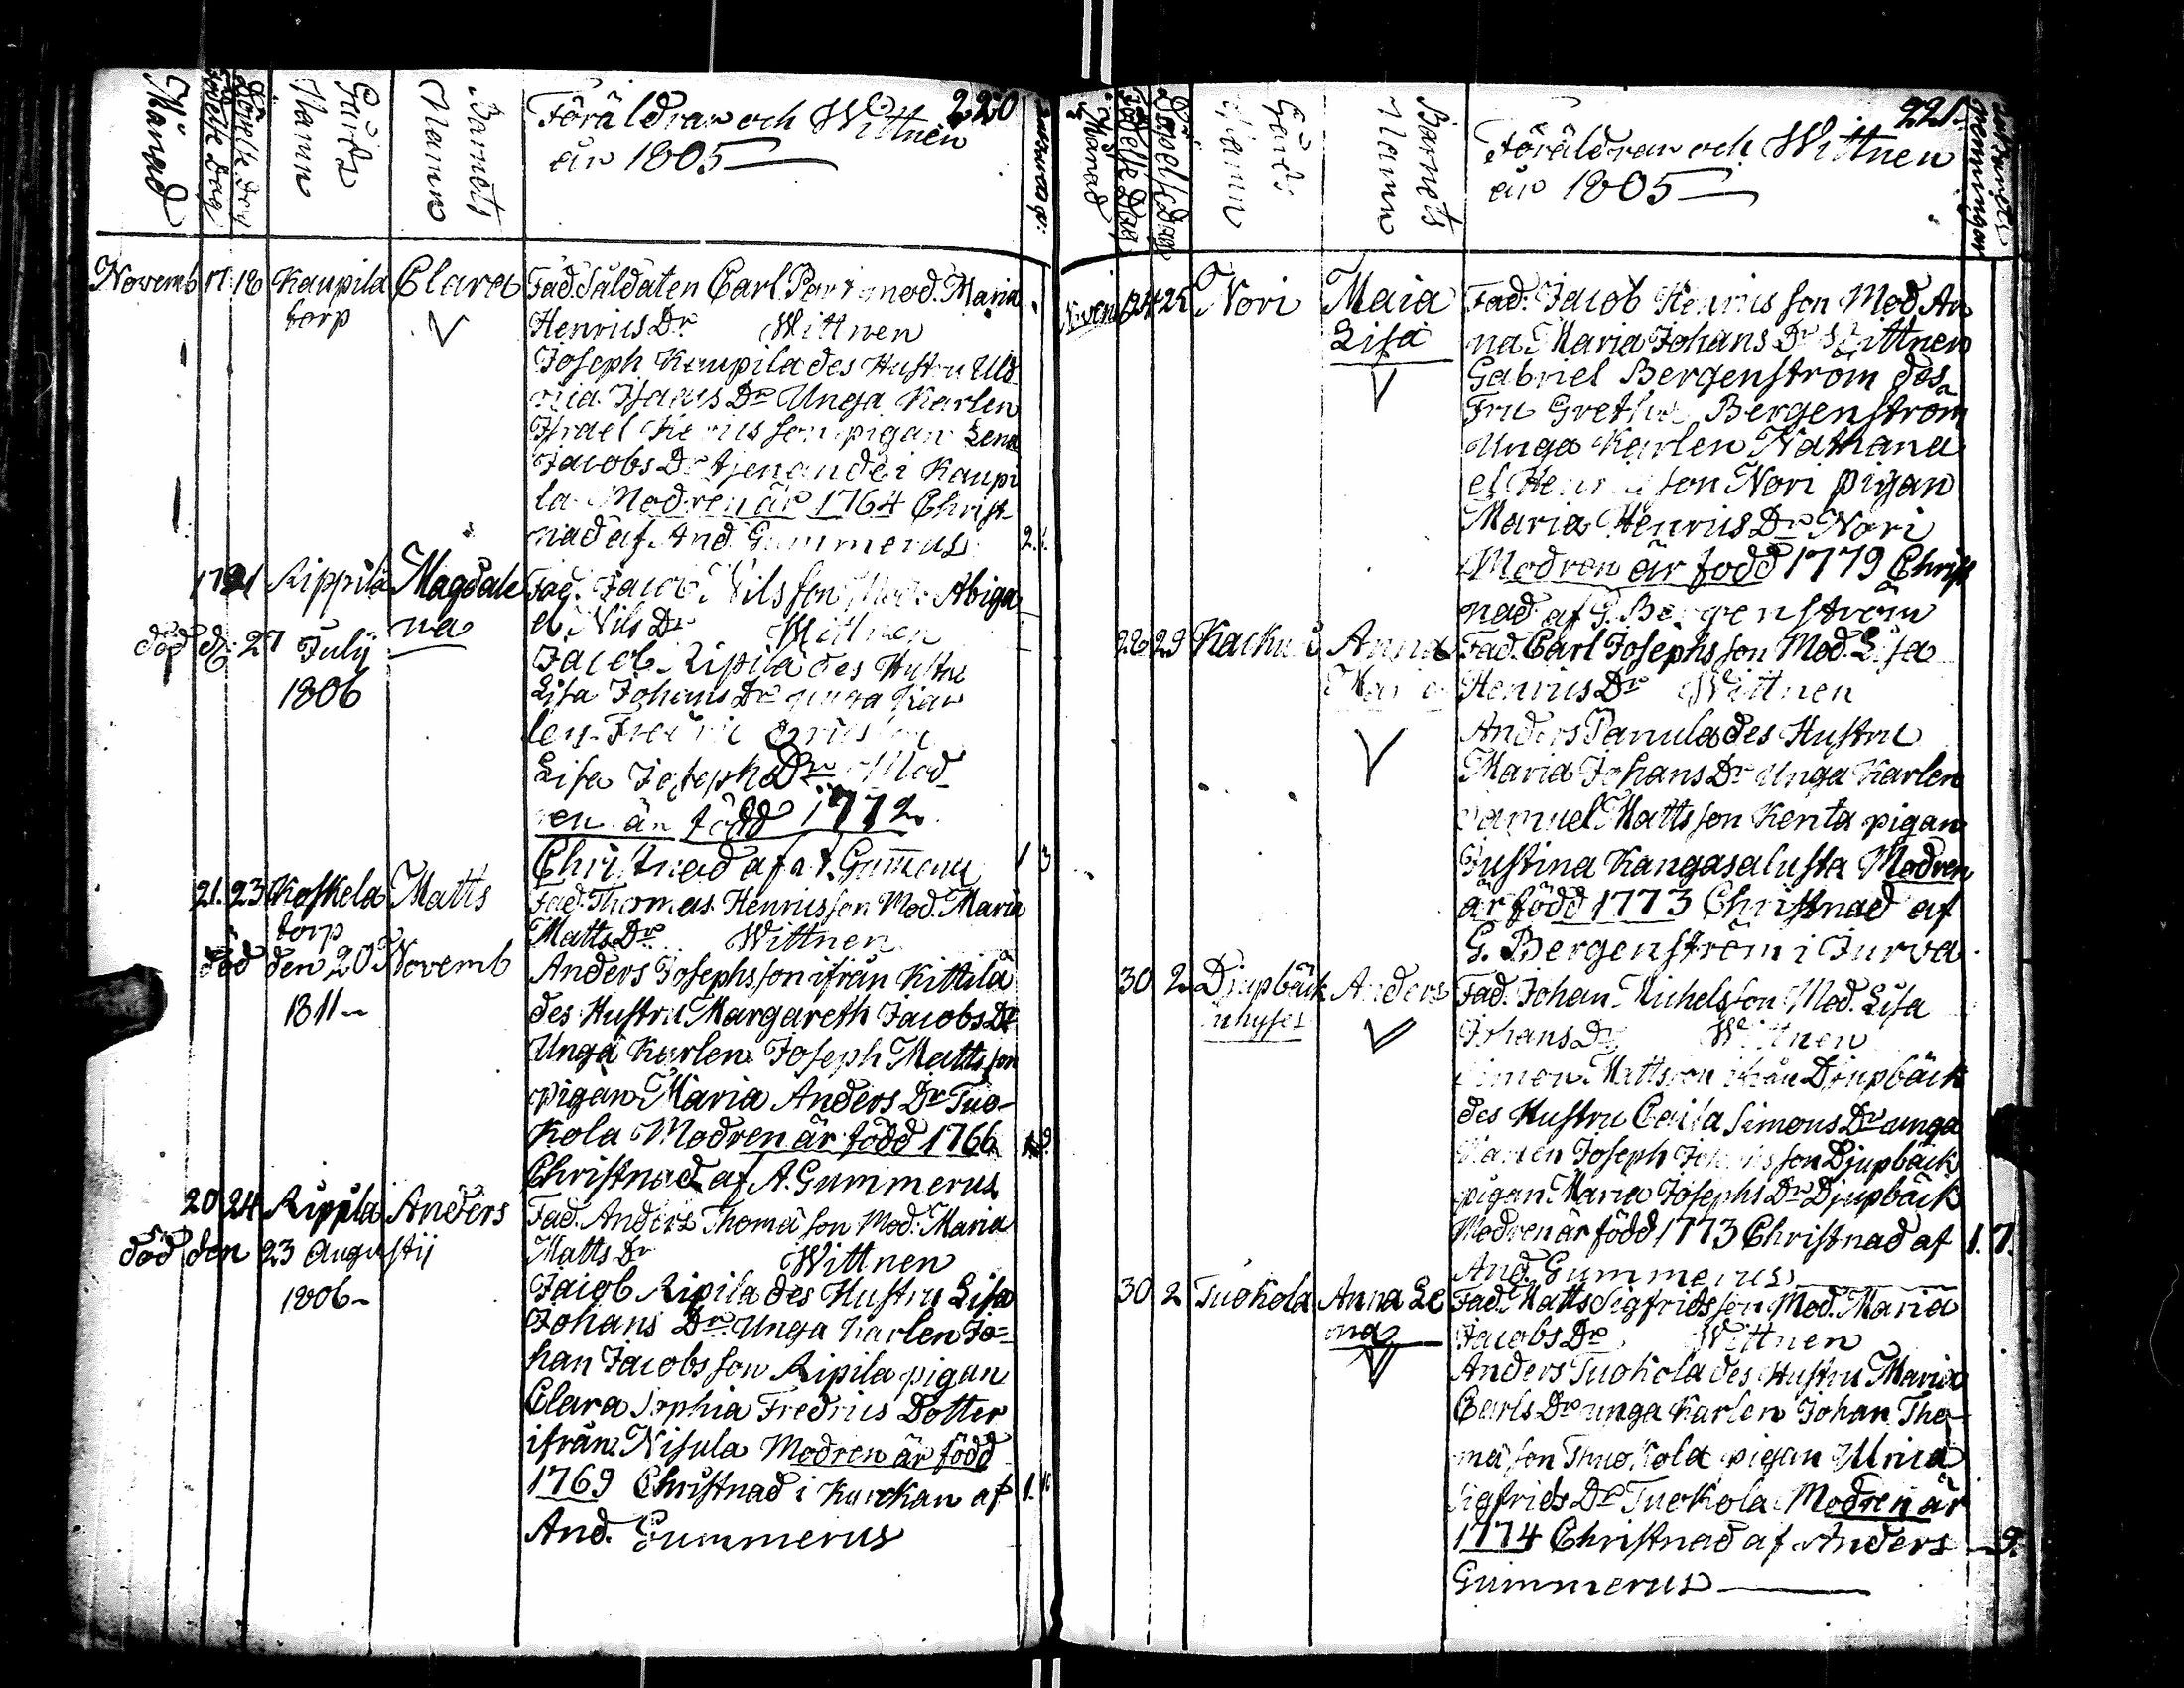 220
Månad
Födelse Dag
Döpelse Dag
Gårds
Namn
Barnets
Namn
Föräldrar och Wittnen
år 1805
Novemb 17 18 Kaupila Clara Fad. Saldaten Carl mod. Maria
torp
Henrics Dr Wittnen
Joseph Kaupila des Hustru Ulb
rica Isaacs Dr Unga Karlen
Israel Henricsson pigan Lena
Jacobs Dr tjenande i Kaupi
la Modren är 1764 Christ-
nad af And. Gummerus
17 21 Rippila Magdale Fad. Jacob Nilsson Mod. Abiga
na
el Nils Dr Wittnen
död d. 27 July
1806
Jacob Ripila des Hustru
Lisa Johans Dr unga Kar
len
Lisa Josephs Dr Mod
ren är född 1772
Christnad af A. Gummeru 1 3
21. 23 Koskela Matts Fad. Thomas Henricsson Mod. Maria
torp
Matts Dr Wittnen
död den 20 Novemb
1811
Anders Josephsson ifrån Kittilä
des Hustru Margareth Jacobs Dr
Unga Karlen Joseph Mattsson
pigan Maria Anders Dr Tuo-
kola Modren är född 1766
Christnad af A. Gummerus
20 24 Rippila Anders Fad. Anders Thomasson Mod. Maria
Matts Dr Wittnen
död den 23 Augustij
1806
Jacob Ripila des Hustru Lisa
Johans Dr Unga Karlen Jo=
han Jacobsson Ripila pigan
Clara Sophia Fredrics Dotter
ifrån Nisula Modren är född
1769 Christnad i Kyrckan af
And. Gummerus
221.
Månad
Födelse Dag
Döpelse Dag
Gårds
Namn
Barnets
Namn
Föräldrar och Wittnen
år 1805
Novem 24 25 Nori Maia Fad. Jacob Henricsson Mod. An
Lisa
na Maria Johans Dr Wittnen
Gabriel Bergenström des
Fru Gretha Bergenström
Unga Karlen Nathana
el Henricsson Nori pigan
Maria Henrics Dr Nori
Modren är född 1779 Christ
nad af G. Bergenström
28 29 Anna Fad. Carl Josephsson Mod. Lisa
Maria
Henrics Dr Wittnen
Anders Panula des Hustru
Maria Johans Dr Unga Karlen
Samuel Mattsson Kenta pigan
Justina Kangasalusta Modren
är född 1773 Christnad af
G. Bergenström i Jurva
30 2 Djupbäck Anders Fad. Johan Michelsson Mod. Lisa
inhyses
Johans Dr Wittnen
Simon Mattsson ifrån Djupbäck
des Hustru Caisa Simons Dr unga
Karlen Joseph Johansson Djupbäck
pigan Maria Josephs Dr Djupbäck
Modren är född 1773 Christnad af 1. 7.
And. Gummerus
30 2 Tuokola Anna Le Fad. Matts Sigfridsson Mod. Maria
na
Jacobs Dr Wittnen
Anders Tuokola des Hustru Maria
Carls Dr unga Karlen Johan Tho-
masson Tuokola pigan Ulrica
Sigfrids Dr Tuokola Modren är
1774 Christnad af Anders 9.
Gummerus